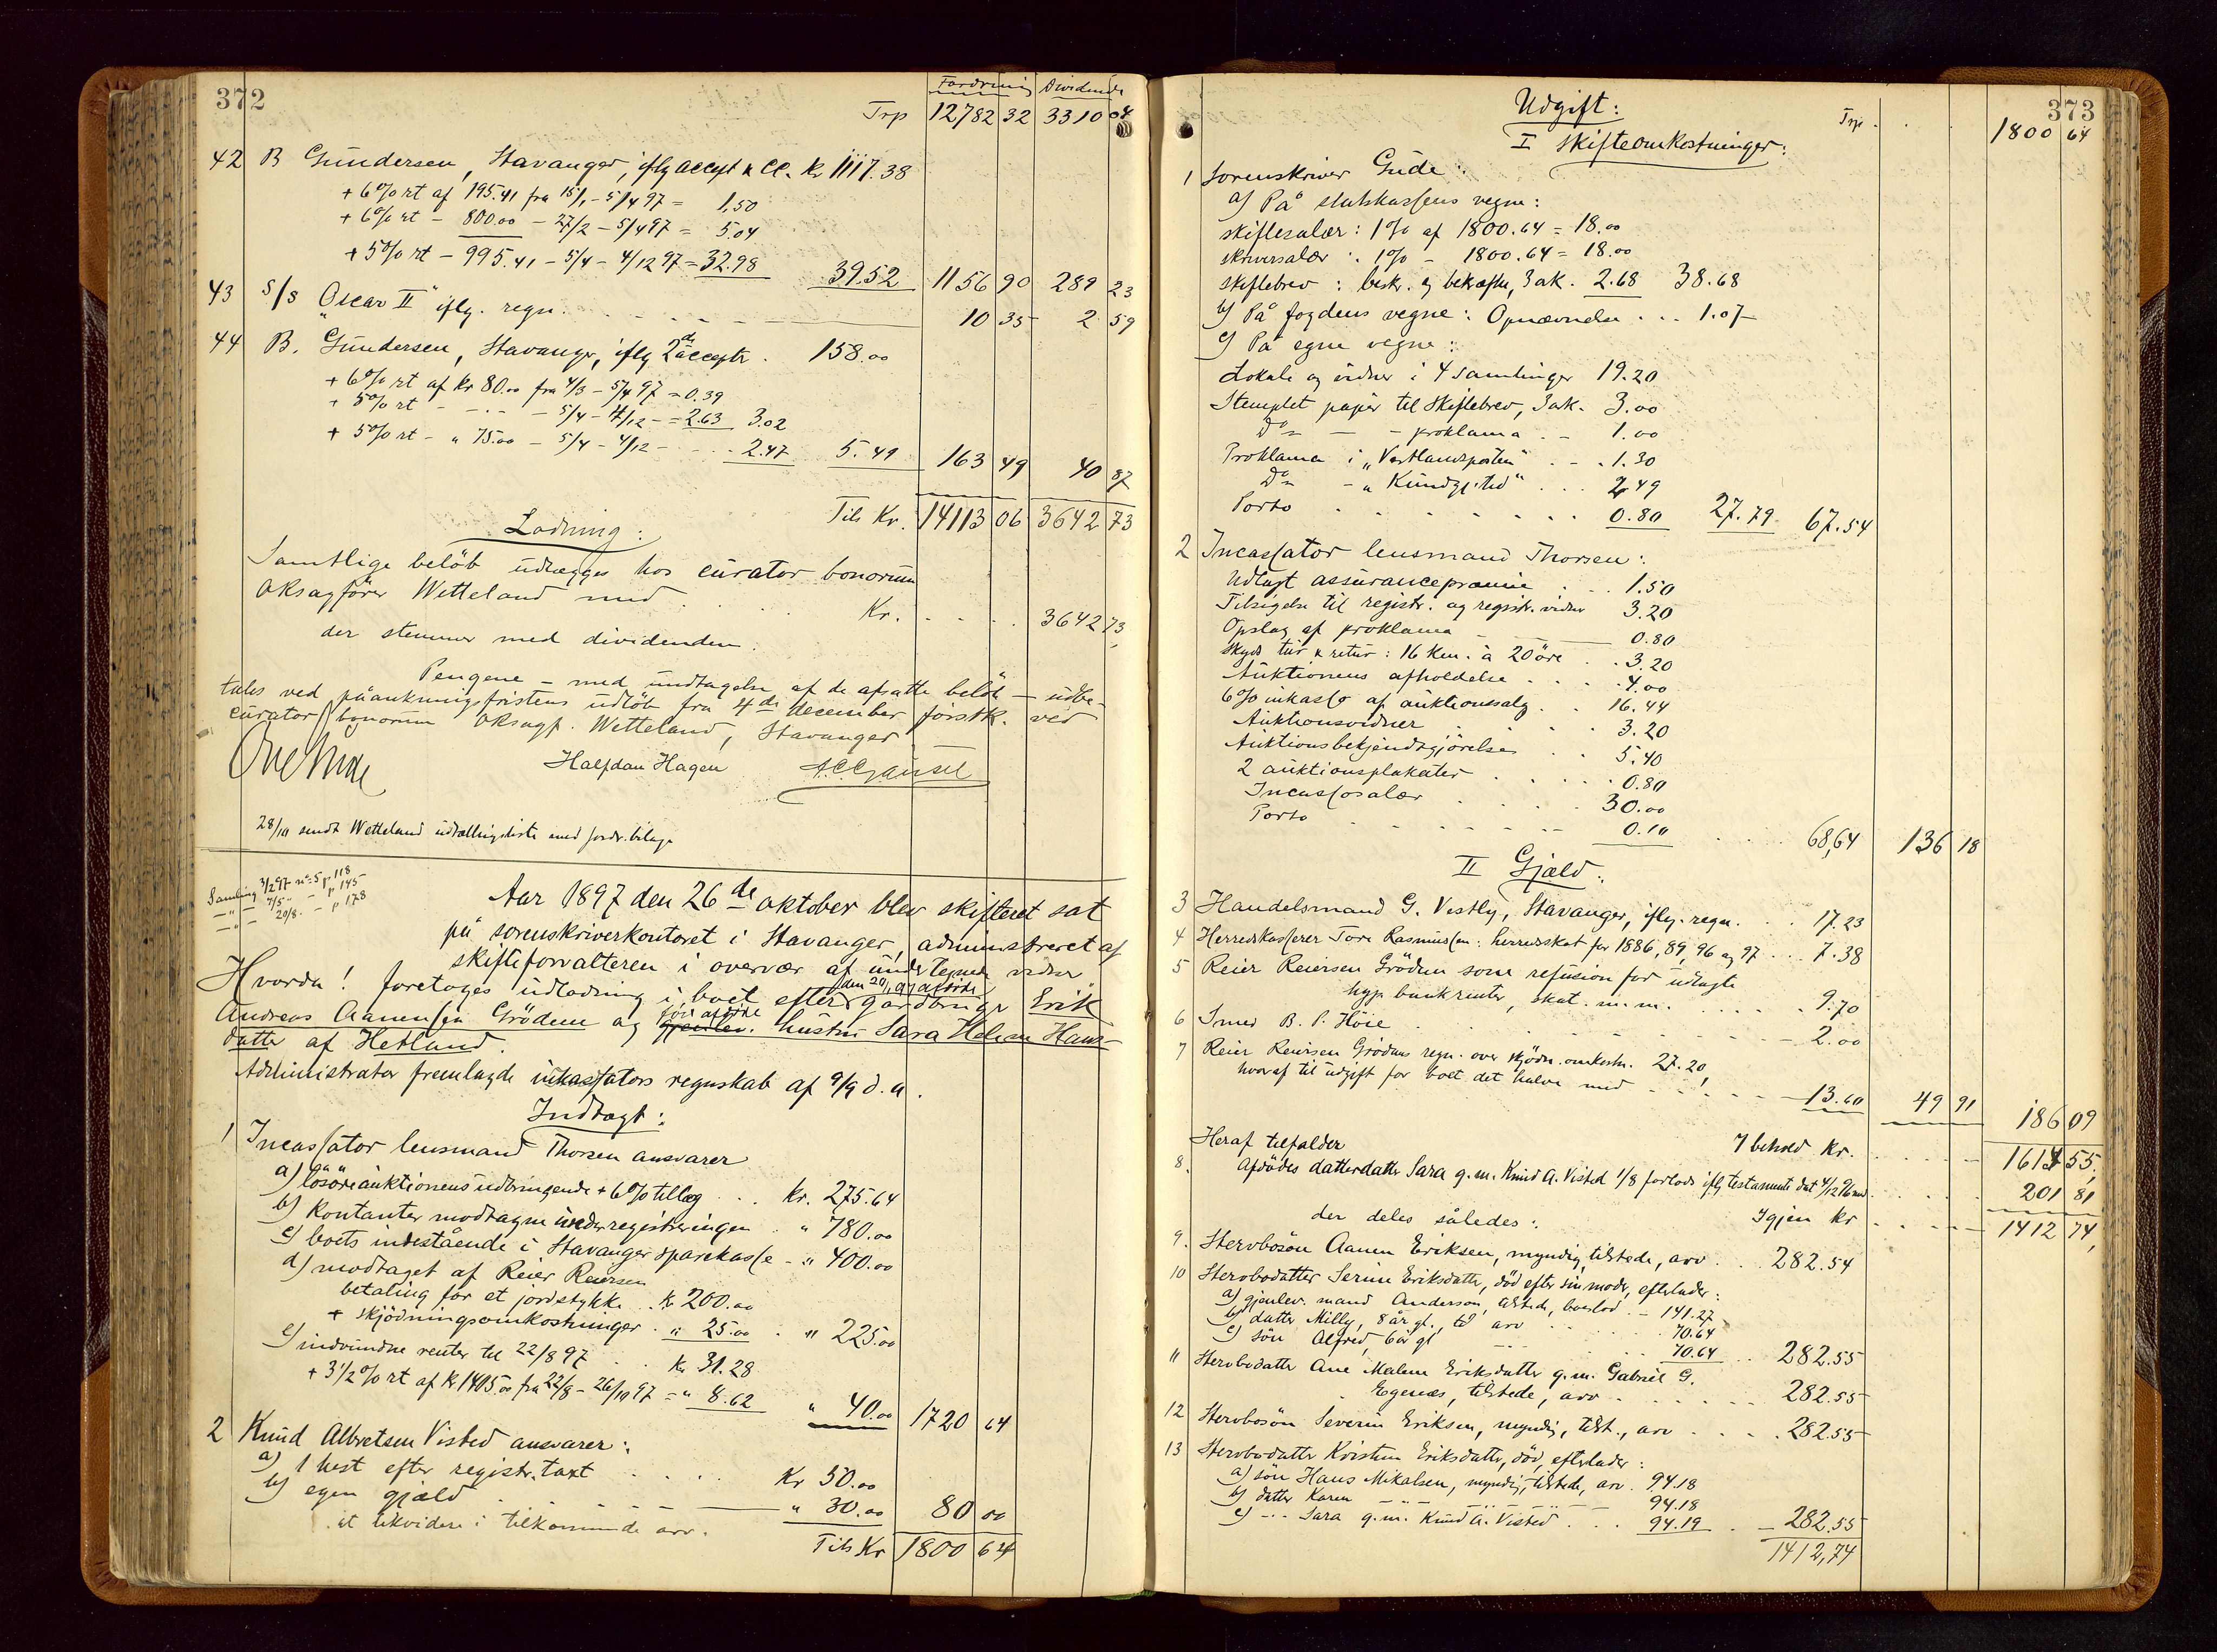 372
Fordring Dividende
Trp 12782 32 3310 04
42 B Gundersen, Stavanger, iflg accept & CC. Kr 1117.38
+ 6% rt af 195.41 fra 15/1 – 5/4 97 = 1,50
+ 6% rt – 800.00 – 27/2 – 5/4 97 = 5.04
+ 5% rt – 995.41 – 5/4 – 4/12 97 = 32.98 39.52 1156 90 289 23
43 S/S "Oscar II" iflg. regn. 10 35 2 59
44 B. Gundersen, Stavanger, iflg 2de accepter. 158.00
+ 6% rt af kr 80.00 fra 4/3 – 5/4 97 = 0.39
+ 5% rt – – – 5/4 – 4/12 – = 2.63 3.02
+ 5% rt – " 75.00 – 5/4 – 4/12 – 2.47 5.49 163 49 40 87
Tils Kr. 14113 06 3642 73
Lodning:
Samtlige beløb udlægges hos curator bonorum
oksagfører Wetteland med Kr. 3642 73
der stemmer med dividenden.
Pengene – med undtagelse af de afsatte beløb – udbe-
tales ved påankningsfristens udløb fra 4de december førstk. ved
curator bonorum oksagf. Wetteland, Stavanger
Halfdan Hagen
28/10 sendt Wetteland udtællingsliste med fordr. bilage
Samling 3/2 97 no 5 p 118
–"– 7/5 – – p 145
–"– 20/8 – – p 178
Aar 1897 den 26de oktober blev skifteret sat
på sorenskriverkontoret i Stavanger, administreret af
skifteforvalteren i overvær af undertegnede vidner
Hvorda! foretoges udlodning i boet efter den 20/1 97 afdøde gårdbruger Erik
Andreas Aanensen Grødem og før afdøde gjenlev. hustru Sara Helene Hans-
datter af Hetland.
Administrator fremlagde inkassators regnskab af 9/9 d.a.
Indtægt:
1 Incassator lensmand Thorsen ansvarer
a) løsøreauktionens udbringende + 6% tillæg kr. 275.64
b) Kontanter modtagne under registreringen " 780.00
c) boets indestående i Stavanger sparekasse – " 400.00
d) modtaget af Reier Reiersen
betaling for et jordstykke kr 200.00
+ skjødningsomkostninger " 25.00 " 225.00
e) indvundne renter til 22/8 97 kr 31.28
+ 3 1/2 % rt af kr 1405.00 fra 22/8 – 26/10 97 = " 8.62 " 40.00 1720 64
2 Knud Albretsen Visted ansvarer:
a) 1 hest efter registr. taxt Kr 50.00
b) egen gjæld " 30.00 80 00
at likvidere i tilkommende arv.
Tils Kr 1800 64
373
Udgift: Trp. 1800 64
I Skifteomkostninger:
1 Sorenskriver Gude:
a) På statskassens vegne:
skiftesalær: 1% af 1800.64 = 18.00
skriversalær: 1% – 1800.64 = 18.00
skiftebrev: beskr. og bekræfte, 3 ak. 2.68 38.68
b) På fogdens vegne: Opnævnelse 1.07
c) På egne vegne:
Lokale og vidner i 4 samlinger 19.20
Stemplet papir til skiftebrev, 3 ak. 3.00
Do – – proklama 1.00
Proklama i "Vestlandsposten" 1.30
Do – "Kundgj.tid" 2.49
Porto 0.80 27.79 67.54
2 Incassator lensmand Thorsen:
Udlagt assurancepræmie 1.50
Tilsigelse til registr. og registr. vidner 3.20
Opslag af proklama 0.80
Skyds tur & retur: 16 km. à 20 øre 3.20
Auktionens afholdelse 4.00
6% inkasso af auktionssalg 16.44
Auktionsvidner 3.20
Auktionsbekjendtgjørelse 5.40
2 auktionsplakater 0.80
Incassosalær 30.00
Porto 0.10 68,64 136 18
II Gjæld:
3 Handelsmand G. Vestly, Stavanger, iflg. regn. 17.23
4 Herredskasserer Tore Rasmussen: herredsskat for 1886, 89, 96 og 97 7.38
5 Reier Reiersen Grødem som refusion for udlagte
hyp. bankrenter, skat. m.m. 9.70
6 Smed B. P. Høie 2.00
7 Reier Reiersen Grødems regn. over skjødn. omkostn. 27.20,
hvoraf til udgift for boet det halve med 13.60 49 91 186 09
I behold kr. 1614 55
Heraf tilfalder
8. Afdødes datterdatter Sara g.m. Knud A. Visted 1/8 forlods iflg testamente dat 4/12 96 med 201 81
Igjen kr 1412 74
der deles således:
9. Stervbosøn Aanen Eriksen, myndig, tilstede, arv 282.54
10 Stervbodatter Serine Eriksdatter, død efter sin moder, efterlader:
a) gjenlev. mand Anderson, tilstede, boeslod – 141.27
b) datter Milly, 8 år gl., til arv 70.64
c) søn Alfred, 6 år gl 70.64 282.55
11 Stervbodatter Ane Malene Eriksdatter g.m. Gabriel G.
Egenæs, tilstede, arv 282.55
12 Stervbosøn Severin Eriksen, myndig, tilst., arv 282.55
13 Stervbodatter Kristine Eriksdatter, død, efterlader:
a) søn Hans Mikalsen, myndig, tilstede, arv. 94.18
b) datter Karen –"– 94.18
c) –"– Sara g.m. Knud A. Visted 94.19 282.55
1412,74